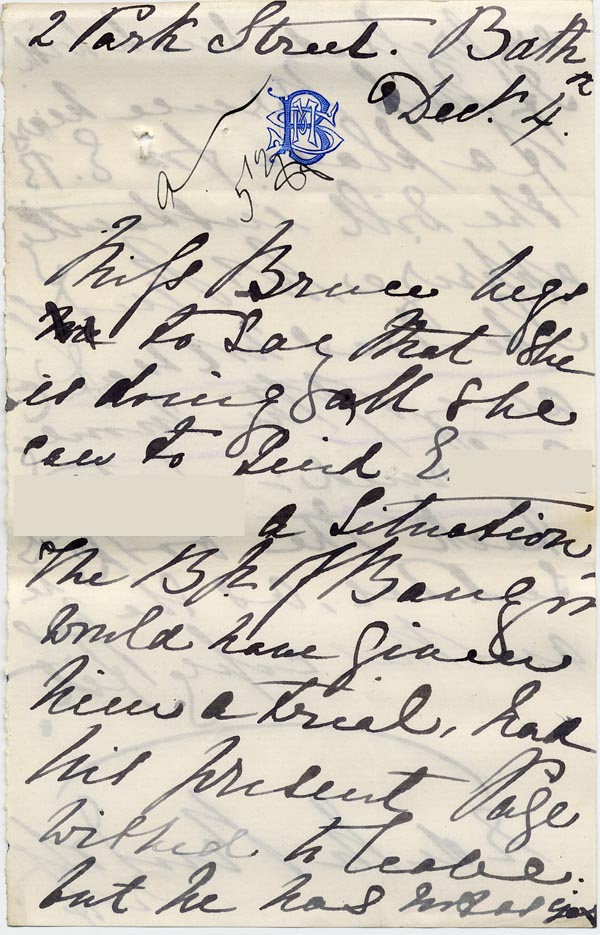 2 Park Street. Bath
Decr. 4.
Miss Bruce begs
to say that she
is doing all she
can to find E
a situation
The Bp. of Bangor
would have given
him a trial, had
his present Page
wished to leave.
but he has not as yet